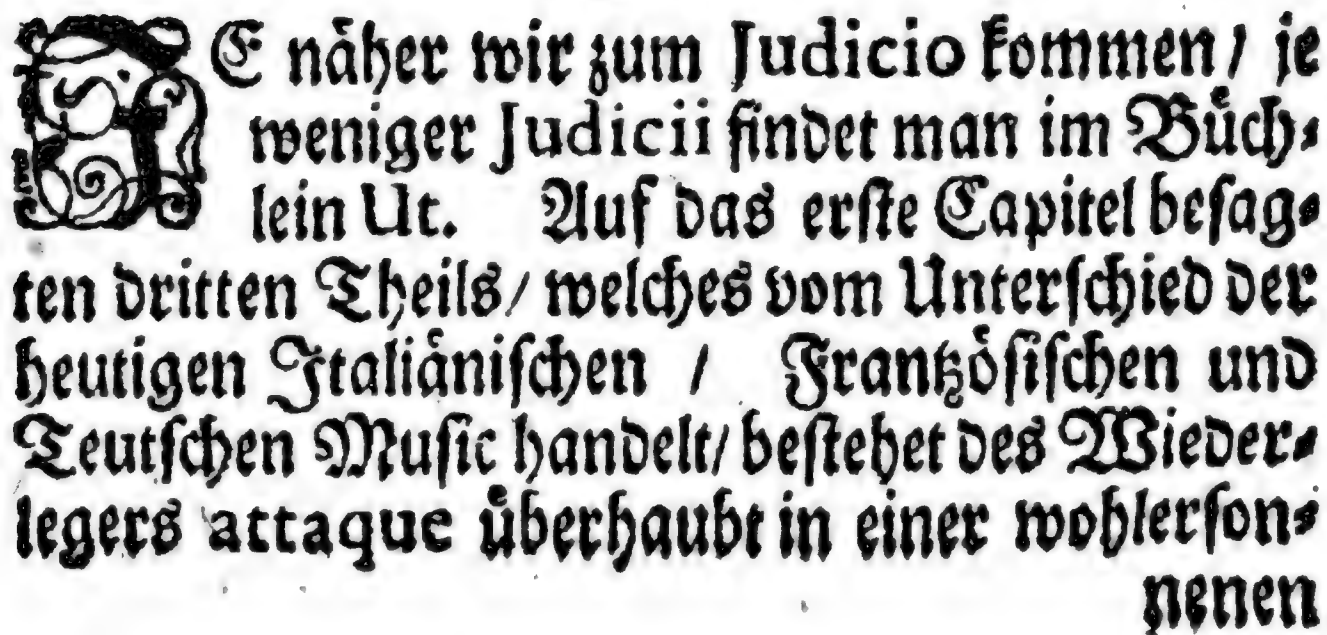 JE nåher wir zum Judicio kommen / je
weniger Judicii findet man im Bůch-
lein Ut. Auf das erste Capitel besag-
ten dritten Theils / welches vom Unterschied der
heutigen Italiånischen / Frantzȯsischen und
Teutschen Music handelt / bestehet des Wieder-
legers attaque ůberhaubt in einer wohlerson-
nenen